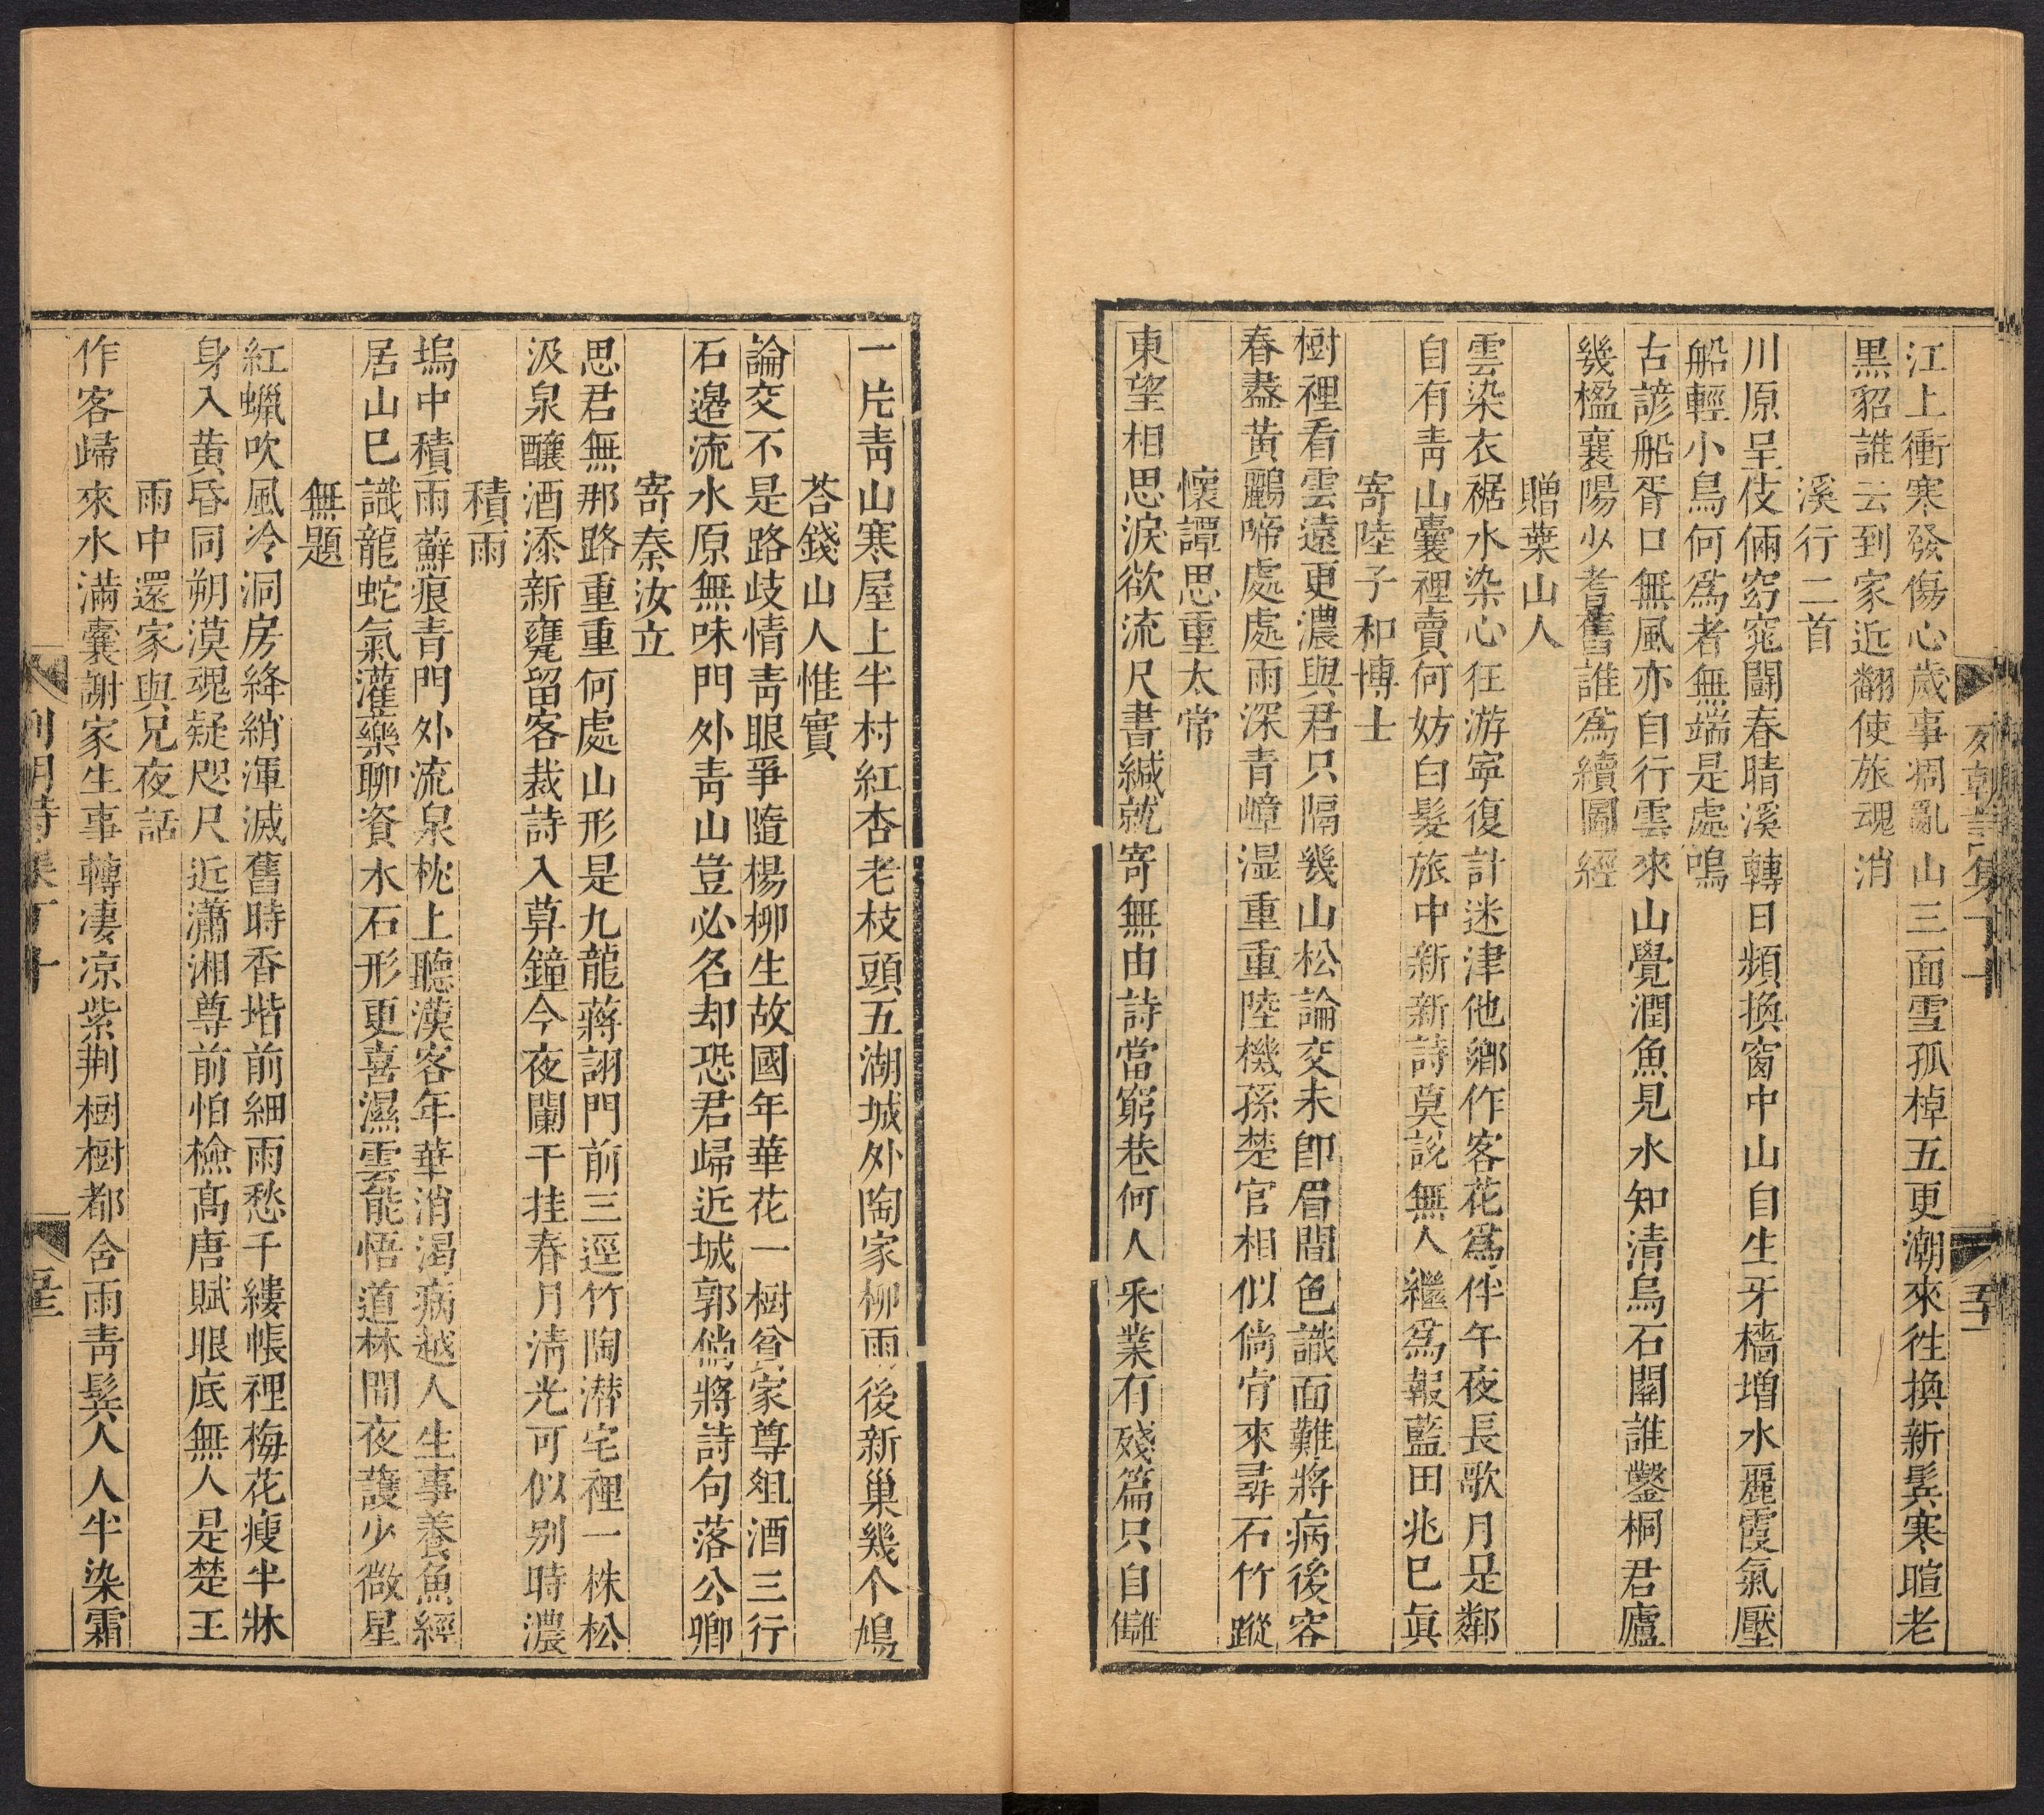 江上衝寒發傷心歲事凋亂山三面雪孤棹五更潮來徃換新鬂寒暄老
黑貂誰云到家近翻使旅魂消
溪行二首
川原呈伎倆窈窕鬪春晴溪轉日頻換窗中山自生牙檣増水麗霞氣壓
船輕小鳥何為者無端是處鳴
古諺船胥口無風亦自行雲來山覺潤魚見水知清烏石關誰鑿桐君廬
幾楹襄陽少耆舊誰為續圖經
贈葉山人
雲染衣裾水染心狂游寧復計迷津他鄉作客花為伴午夜長歌月是鄰
自有青山囊裡賣何妨白髮旅中新新詩莫說無人繼為報藍田兆巳眞
寄陸子和博士
樹裡看雲遠更濃與君只隔幾山松論交未卽眉間色識面難將病後容
春盡黃鸝啼處處雨深青嶂湿重重陸機孫楚官相似倘肯來尋石竹蹤
懷譚思重太常
東望相思淚欲流尺書緘就寄無由詩當窮巷何人采業有殘篇只自讎
列朝詩集丁十
一片青山寒屋上半村紅杏老枝頭五湖城外陶家柳雨後新巢幾个鳩
荅錢山人惟實
論交不是路歧情青眼爭隨楊柳生故國年華花一樹貧家尊俎酒三行
石邊流水原無味門外青山豈必名却恐君歸近城郭倘將詩句落公卿
寄秦汝立
思君無那路重重何處山形是九龍蔣詡門前三逕竹陶潜宅裡一株松
汲泉釀酒添新甕留客裁詩入算鐘今夜闌干挂春月清光可似别時濃
積雨
塢中積雨蘚痕青門外流泉枕上聽漢客年華消渴病越人生事養魚經
居山巳識龍蛇氣灌藥聊資水石形更喜濕雲能悟道林間夜護少微星
無題
紅蠟吹風冷洞房絳綃渾滅舊時香堦前細雨愁千縷帳裡梅花瘦半牀
身入黄昏同朔漠魂疑咫尺近瀟湘尊前怕檢高唐賦眼底無人是楚王
雨中還家與兄夜話
作客歸來水滿囊謝家生事轉凄凉紫荆樹樹都含雨青鬂人人半染霜